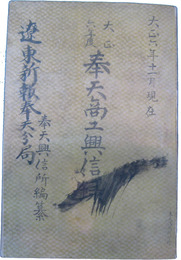 大正六年十一月現在
大正六年度
奉天商工興信
奉天興信所編纂
遼東新報奉天支局